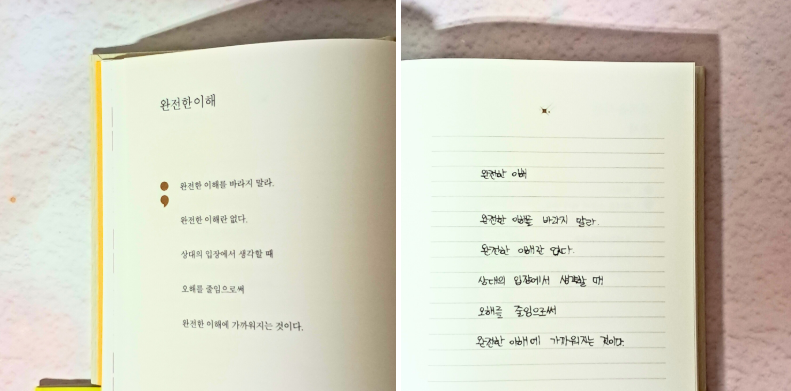 완전한 이해
완전한 이해를 바라지 말라.
완전한 이해란 없다.
상대의 입장에서 생각할 때
오해를 줄임으로써
완전한 이해에 가까워지는 것이다.
완전한 이해
완전한 이해를 바라지 말라.
완전한 이해란 없다.
상대의 입장에서 생각할 때
오해를 줄임으로써
완전한 이해에 가까워지는 것이다.